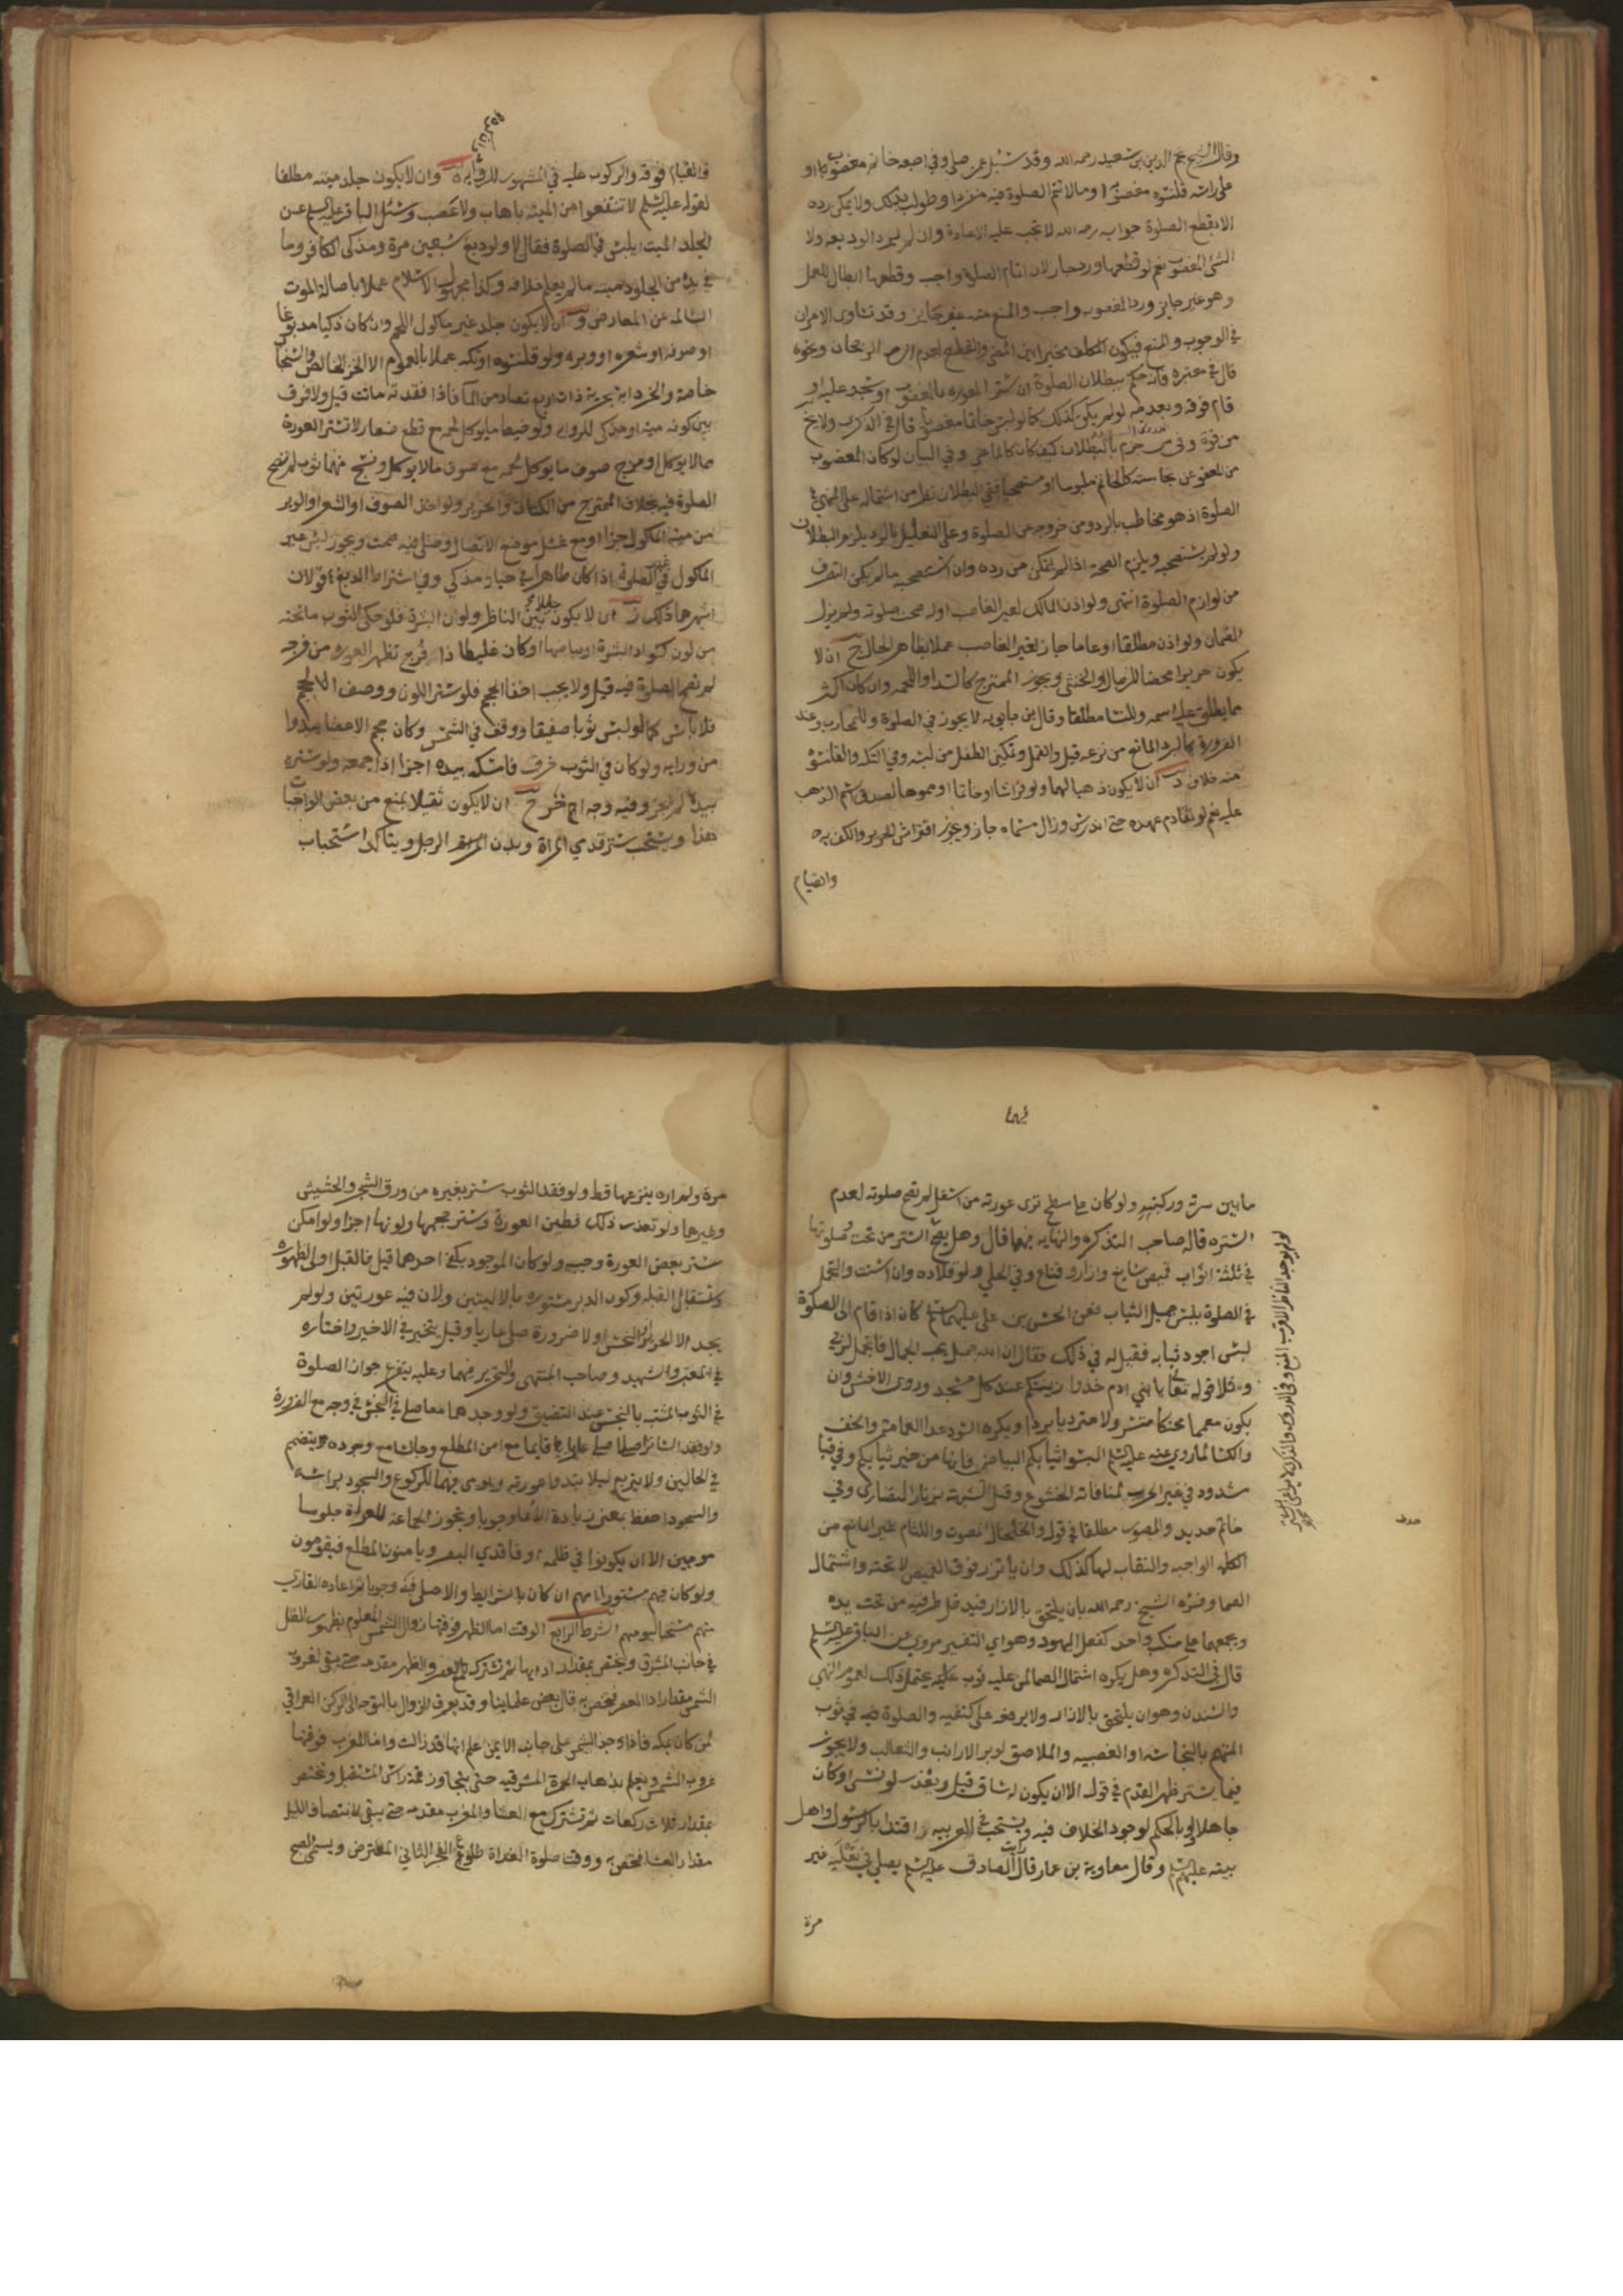 وقال الشيخ نجم الدين بن سعيد رحمه الله وقد سئل عمن صلى وفي اصبعه خاتم مغصوب او
على راسه قلنسوه مغصوبه او مالا تتم الصلوة فيه منفردا وطولب بذلك ولا يمكن رده
الا بقطع الصلوة جوابه رحمه الله لا تجب عليه الاعادة وان لم يرد الوديعه ولا
الشئ المغصوب نعم لو قطعها ورد جاز لان اتمام الصلوة واجب وقطعها ابطال للعمل
وهو غير جايز ورد المغصوب واجب والمنع منه غير جايز وقد تساوى الامران
في الوجوب والمنع فيكون المكلف مخيرا بين المضي والقطع لعدم الرجحان ونحوه
قال في معتبره فانه حكم ببطلان الصلوة ان ستر العوره بالمغصوب او سجد عليه او
قام فوقه وبعدمه لو لم يكن كذلك كما لو لبس خاتما مغصوبا قال في الذكرى ولا يخ
من قوة وفي جزم بالبطلان كيف كان كالماضي وفي البيان لو كان المغصوب
من المعفو عن نجاسته كالخاتم ملبوسا او مستصحبا ففي البطلان نظر من اشتماله على المنهي في
الصلوة اذ هو مخاطب بالرد ومن خروجه عن الصلوة وعلى التعليل بالرد يلزم البطلان
ولو لم يستصحبه ويلزم الصحة اذا لم يتمكن من رده وان استصحبه ما لم يكن التصرف
من لوازم الصلوة انتهى ولو اذن المالك لغير الغاصب اوله صحت صلوته ولم يزل
الضمان ولو اذن مطلقا او عاما جاز لغير الغاصب عملا بظاهر الحال ج ان لا
يكون حريرا محضا للرجال والخنثى ويجوز الممتزج كالسدا واللحمه وان كان اكثر
مما يطلق عليه اسمه وللنسا مطلقا وقال بن بابويه لا يجوز في الصلوة وللمحارب وعند
الضرورة كالبرد المانع من نزعه قيل والقمل وتمكين الطفل من لبسه وفي التكه والقلنسوة
منه خلاف د ان لا يكون ذهبا لهما ولو فراشا او خاتما او مموها لصدق اسم الذهب
عليه نعم لو تقادم عهده حتى اندرس وزال مسماه جاز ويجوز افتراش الحرير والكف به
والقيام
والقيام فوقه والركوب عليه في المشهور للرواية ه وان لا يكون جلد ميته مطلقا
لقوله عليه السلم لا تنتفعوا من الميتة باهاب ولا عصب وسئل الباقر عليه السلم عن
الجلد الميت ايلبس في الصلوة فقال لا ولو دبغ سبعين مرة ومذكى الكافر وما
في يده من الجلود ميته ما لم يعلم خلافه وكذا مجهول الاسلام عملا باصالة الموت
السالمه عن المعارض و ان لا يكون جلد غير ماكول اللحم وان كان ذكيا مدبوغا
او صوفه او شعره او وبره ولو قلنسوه او تكه عملا بالعموم الا الخز الخالص والسنجاب
خاصة والخز دابة بحرية ذات اربع تصاد من الما فاذا فقدته ماتت قيل ولا فرق
بين كونه ميتا او مذكى للروايه ولو خيط ما يوكل لحمه مع قطع صغار لا تستر العورة
مما لا يوكل او مزج صوف ما يوكل لحمه مع صوف ما لا يوكل ونسج منهما ثوب لم تصح
الصلوة فيه بخلاف الممتزج من الكتان والحرير ولو اخذ الصوف او الشعر او الوبر
من ميتة الماكول جزا او مع غسل موضع الاتصال وصلى فيه صحت ويجوز لبس غير
الماكول في غير الصلوة اذا كان طاهرا في حياه مذكى وفي اشتراط الدبغ قولان
اشهرهما ذلك ز ان لا يكون حايلا بين الناظر ولون البشرة فلو حكى الثوب ما تحته
من لون كسواد البشرة او بياضها او كان غليطا ذا فرج تظهر العورة من فرجه
لم تصح الصلوة فيه قيل ولا يجب اخفا الحجم فلو ستر اللون ووصف الحجم
فلا باس كما لو لبس ثوبا صفيقا ووقف في الشمس وكان حجم الاعضا يبدوا
من ورايه ولو كان في الثوب خرق فامسكه بيده اجزا اذا جمعه ولو ستره
بيده لم يجز وفيه وجه اخر ح ان لا يكون ثقيلا يمنع من بعض الواجبات
هذا ويستحب ستر قدمي المراة وبدن الرجل ويتاكد استحباب
ما بين سرته وركبتيه ولو كان على سطح ترى عورته من اسفل لم تصح صلوته لعدم
الستره قاله صاحب التذكره والنهايه فيهما قال وهل يصح الستر من تحت وصلوتها
في ثلثة اثواب قميص سابغ وازار وقناع وفي الحلي ولو قلاده وان اسنت والتجمل
في الصلوة بلبس جميل الثياب فعن الحسن بن علي عليهما السلم كان اذا قام الى الصلوة
لبس اجود ثيابه فقيل له في ذلك فقال ان الله جميل يحب الجمال فاتجمل لربي
وتلا قوله تعا يا بني ادم خذوا زينتكم عند كل مسجد وروي الاخشن وان
يكون معمما محنكا متسرولا متردیا برداء ويكره السود عدا العمامة والخف
والكسا لما روي عنه عليه السلم البسوا ثيابكم البياض فانها من خير ثيابكم وفي قبا
مشدود في غير الحرب لمنافاته الخشوع وقيل لشبهه بزنار النصارى وفي
خاتم حديد والمصور مطلقا في قول والخلخال المصوت واللثام غير المانع من
اكمله الواجبه والنقاب لهما كذلك وان ياتزر فوق القميص لا تحته واشتمال
الصما وفسره الشيخ رحمه الله بان يلتحق بالازار فيدخل طرفيه من تحت يده
ويجمعهما على منكب واحد كفعل اليهود وهو اي التفسير مروي عن الباقر عليه السلم
قال في التذكره وهل يكره اشتمال الصما لمن عليه ثوب يحتمل ذلك لعموم النهي
والسدل وهو ان يلتحق بالازار ولا يرفعه على كتفيه والصلوة في ثوب
المتهم بالنجاسة او الغصبيه والملاصق لوبر الارانب والثعالب ولا يجوز
فيما يستر ظهر القدم في قول الا ان يكون له ساق قيل ويعذر لو نسي او كان
جاهلا بالحكم لوجود الخلاف فيه ويستحب في العربيه اقتدا بالرسول واهل
بيته عليهم السلم وقال معاوية بن عمار قال رايت الصادق عليه السلم يصلي في نعليه غير
مرة
مرة ولم اره ينزعهما قط ولو فقد الثوب ستر بغيره من ورق الشجر والحشيش
وغيرها ولو تعذر ذلك فطين العورة وستر حجمها ولونها اجزا ولو امكن
ستر بعض العورة وجب ولو كان الموجود يكفي احدهما قيل فالقبل اولى لظهوره
واستقبال القبله وكون الدبر مستوره بالاليتين ولان فيه عورتين ولو لم
يجد الا الحرير او النجس ولا ضرورة صلى عاريا وقيل يتخير في الاخير واختاره
في المعتبر والشهيد وصاحب المنتهى والتحرير فيهما وعليه يتفرع جواز الصلوة
في الثوب المشتبه بالنجس عند التضيق ولو وجدهما معا صلى في النجس في وجه مع الضرورة
ولو فقد الساتر اصلا صلى عاريا قايما مع امن المطلع وجالسا مع وجوده ويتضم
في الحالين ولا يتربع ليلا تبدوا عورته ويومى فيهما للركوع والسجود براسه
والسجود اخفظ بمعنى زيادة الايما وجوبا وتجوز الجماعه للعراة جلوسا
موميين الا ان يكونوا في ظلمة او فاقدي البصر ويامنون المطلع فيقومون
ولو كان فيهم مستور امهم ان كان بالشرايط والا صلى
الشرط الرابع الوقت اما الظهر فوقتها زوال الشمس المعلوم بظهور الظل
في جانب المشرق ويختص بمقدار ادايها ثم تشترك مع العصر والظهر مقدمه حتى يبقى لغروب
الشمس مقدار ادا العصر فيختص به قال بعض علماينا وقد يعرف الزوال بالتوجه الى الركن العراقي
لمن كان بمكه فاذا وجد الشمس على حاجبه الايمن علم انها قد زالت واما المغرب فوقتها
غروب الشمس ويعلم بذهاب الحمرة المشرقيه حتى يتجاوز قمة راس المستقبل وتختص
بمقدار ثلاث ركعات ثم تشترك مع العشا والمغرب مقدمه حتى يبقى لانتصاف الليل
مقدار العشا فتختص به ووقت صلوة الغداة طلوع الفجر الثاني المعترض ويسمى الصبح